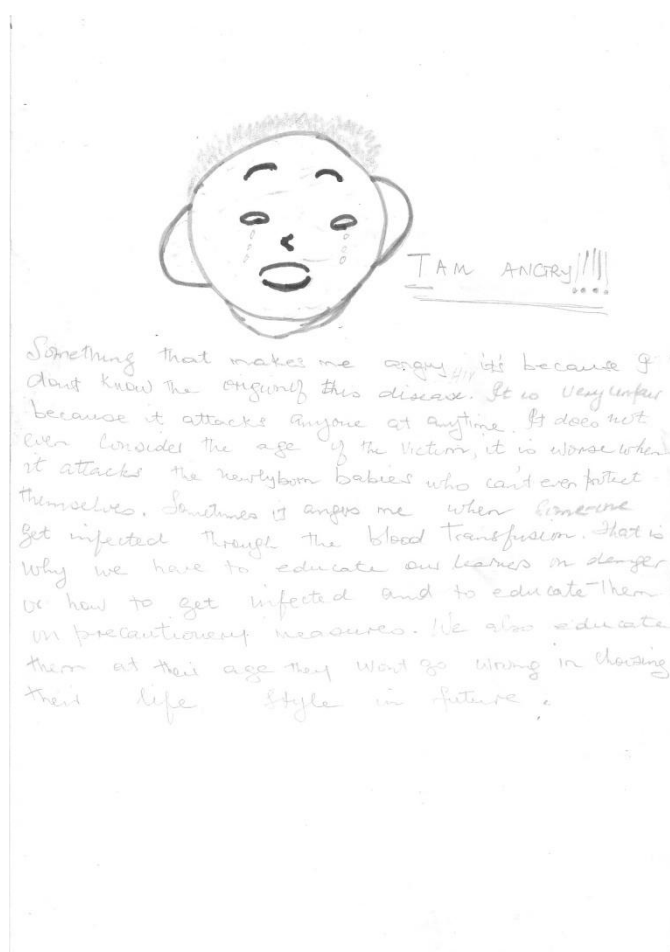 I AM ANGRY!!!!
Something that makes me angry, it's because I
dont know the origin of this disease. It is very unfair
because it attacks anyone at anytime. It does not
even considers the age of the victim, it is worse when
it attacks the newlyborn babies who can't even protect
themselves. Sometimes it angers me when someone
get infected through the blood Transfusion. That is
why we have to educate our learners in danger
or how to get infected and to educate Them
on precautionery measures. We also educate
them at their age they wont go wrong in choosing
their life style in future.